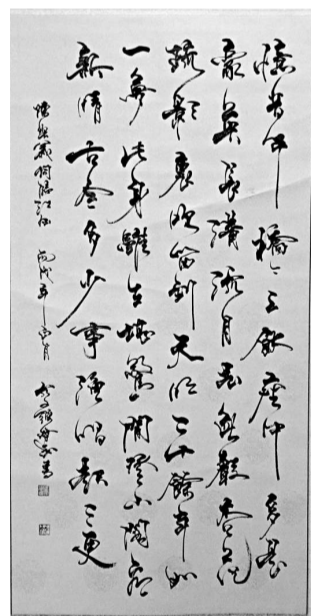 憶昔午橋々上飲座中多是
豪英長溝流月去無聲杏花
疏影裏吹笛到天明二十餘年如
一夢此身雖在堪驚閒登小閣看
新晴古今多少事漁唱起三更
陳與義詞臨江仙 丙戌年正月 書